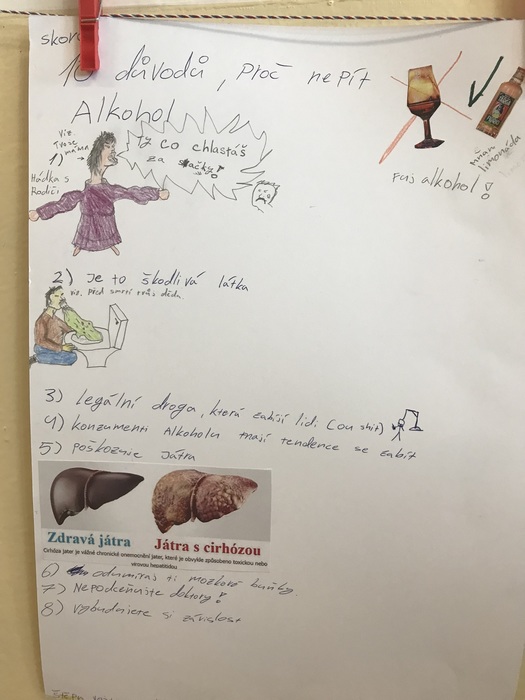 skoro
10 důvodů, proč nepít
Alkohol
viz. tvoje máma
1)
Hádka s
Rodiči
Ty co chlastáš
za sračky!
Fuj alkohol!
mňam
limonáda
2) Je to škodlivá látka
viz. před smrtí tvůj děda.
3) legální droga, která zabíjí lidi (ou shit)
4) konzumenti Alkoholu mají tendence se zabít
5) poškozuje játra
Zdravá játra
Játra s cirhózou
Cirhóza jater je vážné chronické onemocnění jater, které je obvykle způsobeno toxickou nebo
virovou hepatitidou
6) odumírají ti mozkové buňky.
7) Nepodceňujte doktory!
8) vybudujete si závislost